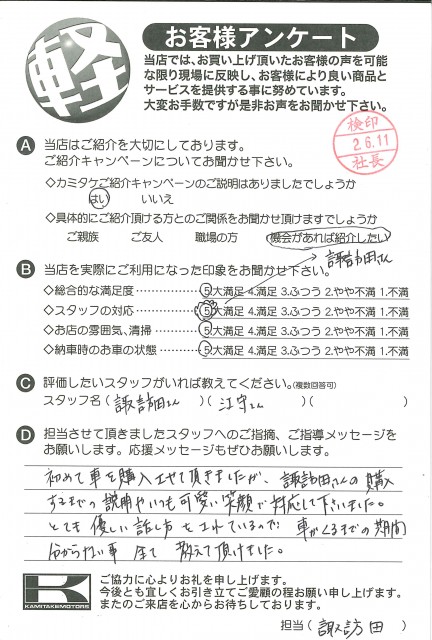 軽
お客様アンケート
当店では、お買い上げ頂いたお客様の声を可能
な限り現場に反映し、お客様により良い商品と
サービスを提供する事に努めています。
大変お手数ですが是非お声をお聞かせ下さい。
検印
2.6.11
社長
A 当店はご紹介を大切にしております。
ご紹介キャンペーンについてお聞かせ下さい。
◇カミタケご紹介キャンペーンのご説明はありましたでしょうか
はい いいえ
◇具体的にご紹介頂ける方とのご関係をお聞かせ頂けますでしょうか
ご親族 ご友人 職場の方 機会があれば紹介したい
諏訪田さん
B 当店を実際にご利用になった印象をお聞かせ下さい。
◇総合的な満足度……………5大満足 4.満足 3.ふつう 2.やや不満 1.不満
◇スタッフの対応……………5大満足 4.満足 3.ふつう 2.やや不満 1.不満
◇お店の雰囲気、清掃………5大満足 4.満足 3.ふつう 2.やや不満 1.不満
◇納車時のお車の状態………5大満足 4.満足 3.ふつう 2.やや不満 1.不満
C 評価したいスタッフがいれば教えてください。(複数回答可)
スタッフ名(諏訪田さん)(江守さん)( )
D 担当させて頂きましたスタッフへのご指摘、ご指導メッセージを
お願いします。応援メッセージもぜひお願いします。
初めて車を購入させて頂きましたが、諏訪田さんの購入
するまでの説明やいつも可愛い笑顔で対応して下さいました。
とても優しい話し方をされているので、車がくるまでの期間
分からない事 全て 教えて頂けました。
K
KAMITAKEMOTORS
ご協力に心よりお礼を申し上げます。
今後とも宜しくお引き立てご愛顧の程お願い申し上げます。
またのご来店を心からお待ちしております。
担当(諏訪田)